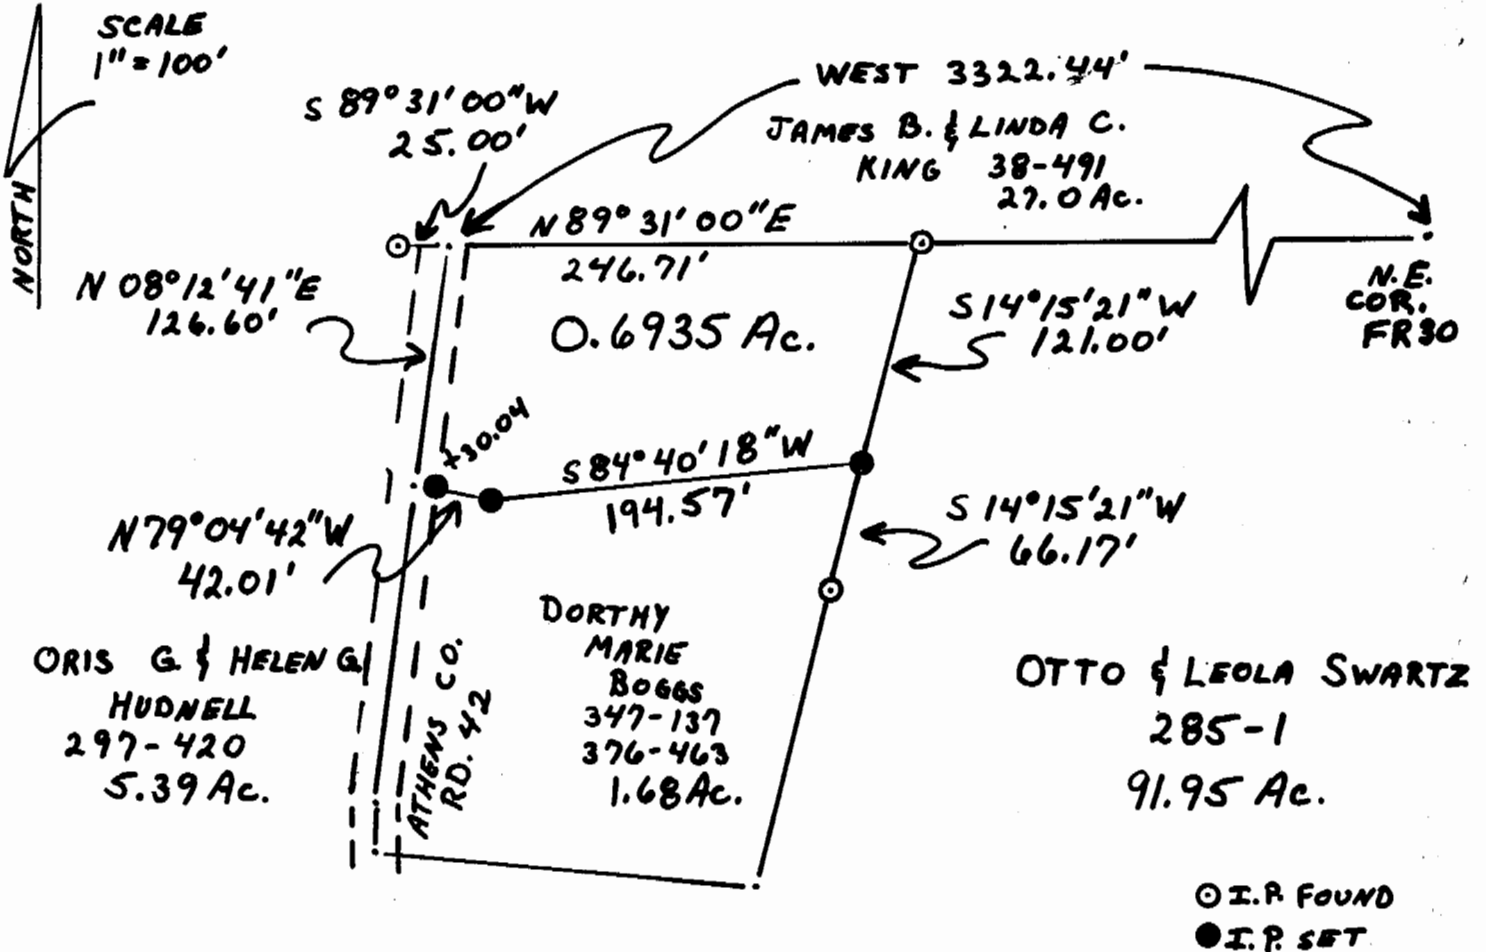 SCALE
1" = 100'
NORTH
S 89° 31' 00" W
25.00'
WEST 3322.44'
JAMES B. & LINDA C.
KING 38-491
27.0 Ac.
N 89° 31' 00" E
246.71'
N 08° 12' 41" E
126.60'
0.6935 Ac.
S 14° 15' 21" W
121.00'
N.E.
COR.
FR30
+30.04
S 84° 40' 18" W
194.57'
N 79° 04' 42" W
42.01'
S 14° 15' 21" W
66.17'
ORIS G. & HELEN G.
HUDNELL
297-420
5.39 Ac.
ATHENS CO.
RD. 42
DORTHY
MARIE
BOGGS
347-137
376-463
1.68 Ac.
OTTO & LEOLA SWARTZ
285-1
91.95 Ac.
I.P. FOUND
I.P. SET